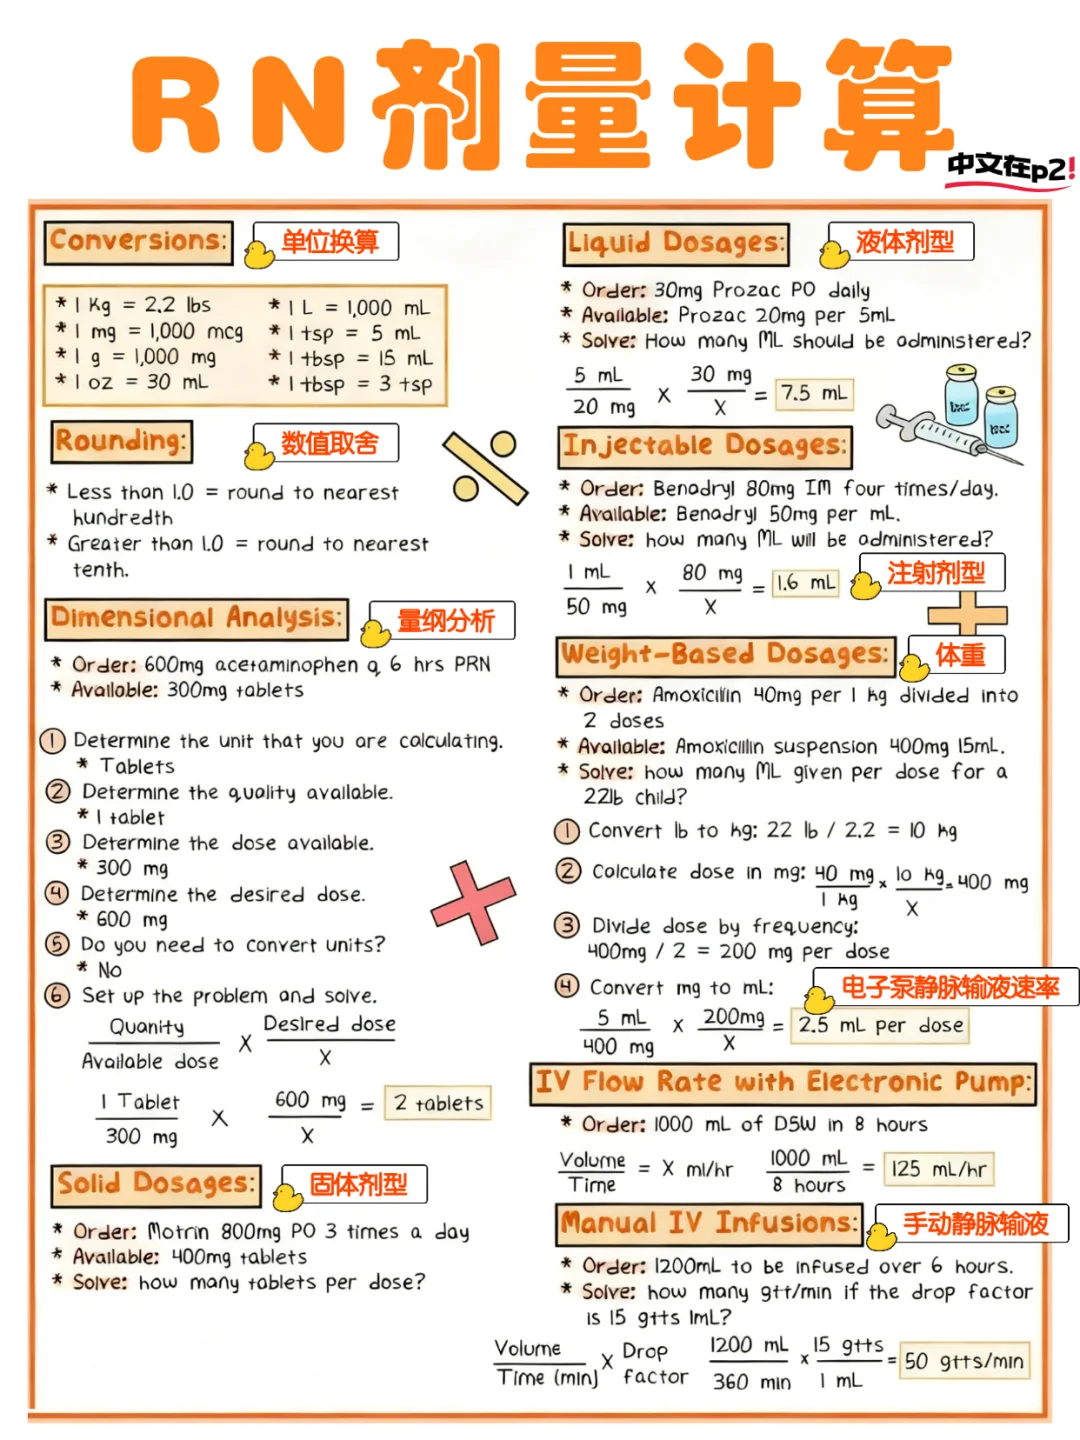 RN剂量计算
中文在p2!
Conversions:
单位换算
* 1 Kg = 2.2 lbs
* 1 mg = 1,000 mcg
* 1 g = 1,000 mg
* 1 oz = 30 mL
* 1 L = 1,000 mL
* 1 tsp = 5 mL
* 1 tbsp = 15 mL
* 1 tbsp = 3 tsp
Rounding:
数值取舍
* Less than 1.0 = round to nearest
hundredth
* Greater than 1.0 = round to nearest
tenth.
Dimensional Analysis:
量纲分析
* Order: 600mg acetaminophen q 6 hrs PRN
* Available: 300mg tablets
1 Determine the unit that you are calculating.
* Tablets
2 Determine the quality available.
* 1 tablet
3 Determine the dose available.
* 300 mg
4 Determine the desired dose.
* 600 mg
5 Do you need to convert units?
* No
6 Set up the problem and solve.
Quanity X Desired dose
Available dose X
1 Tablet X 600 mg = 2 tablets
300 mg X
Solid Dosages:
固体剂型
* Order: Motrin 800mg PO 3 times a day
* Available: 400mg tablets
* Solve: how many tablets per dose?
Liquid Dosages:
液体剂型
* Order: 30mg Prozac PO daily
* Available: Prozac 20mg per 5mL
* Solve: How many ML should be administered?
5 mL X 30 mg = 7.5 mL
20 mg X
Injectable Dosages:
* Order: Benadryl 80mg IM four times/day.
* Available: Benadryl 50mg per mL.
* Solve: how many ML will be administered?
注射剂型
1 mL X 80 mg = 1.6 mL
50 mg X
Weight-Based Dosages:
体重
* Order: Amoxicillin 40mg per 1 kg divided into
2 doses
* Available: Amoxicillin suspension 400mg 15mL.
* Solve: how many ML given per dose for a
22lb child?
1 Convert lb to kg: 22 lb / 2.2 = 10 kg
2 Calculate dose in mg: 40 mg x 10 kg = 400 mg
1 kg X
3 Divide dose by frequency:
400mg / 2 = 200 mg per dose
4 Convert mg to mL:
电子泵静脉输液速率
5 mL X 200mg = 2.5 mL per dose
400 mg X
IV Flow Rate with Electronic Pump:
* Order: 1000 mL of D5W in 8 hours
Volume = X ml/hr 1000 mL = 125 mL/hr
Time 8 hours
Manual IV Infusions:
手动静脉输液
* Order: 1200mL to be infused over 6 hours.
* Solve: how many gtt/min if the drop factor
is 15 gtts 1mL?
Volume X Drop 1200 mL x 15 gtts = 50 gtts/min
Time (min) factor 360 min 1 mL